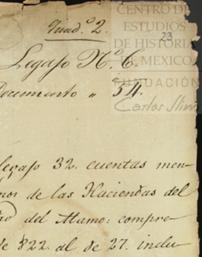 Quad.º 2.
CENTRO DE
ESTUDIOS
DE HISTORIA
DE MEXICO
FUNDACIÓN
Carlos Slim
23
Legajo N.º C.
Documento " 54.
legajo 32. cuentas men
de las Haciendas del
del Alamo: compre
de 822. al de 27. inclu